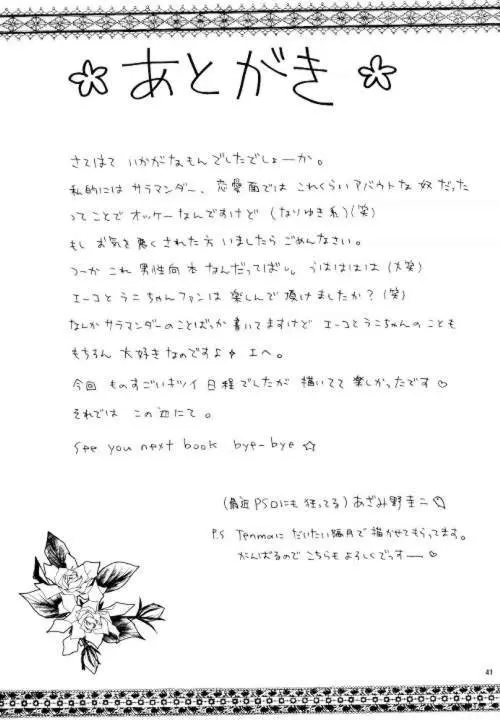 あとがき
さてはて いかがなもんでしたでしょーか。
私的には サラマンダー、恋愛面では これくらい アバウトな 奴だった
ってことで オッケーなんですけど (なりゆき系)(笑)
もし お気を悪くされた方 いましたら ごめんなさい。
つーか これ 男性向本 なんだってばし。 うはははは (大笑)
エーコとラニちゃんファンは 楽しんで頂けましたか？(笑)
なんかサラマンダーのことばっか書いてますけど エーコとラニちゃんのことも
もちろん 大好きなのですよ エへ。
今回 ものすごいキツイ 日程でしたが 描いてて 楽しかったです♡
それでは この辺にて。
See you next book bye-bye ☆
(最近PSOにも狂ってる) あざみ野圭二
P.S Tenmaに だいたい隔月で 描かせてもらってます。
がんばるので こちらも よろしくでっすー ♡
41